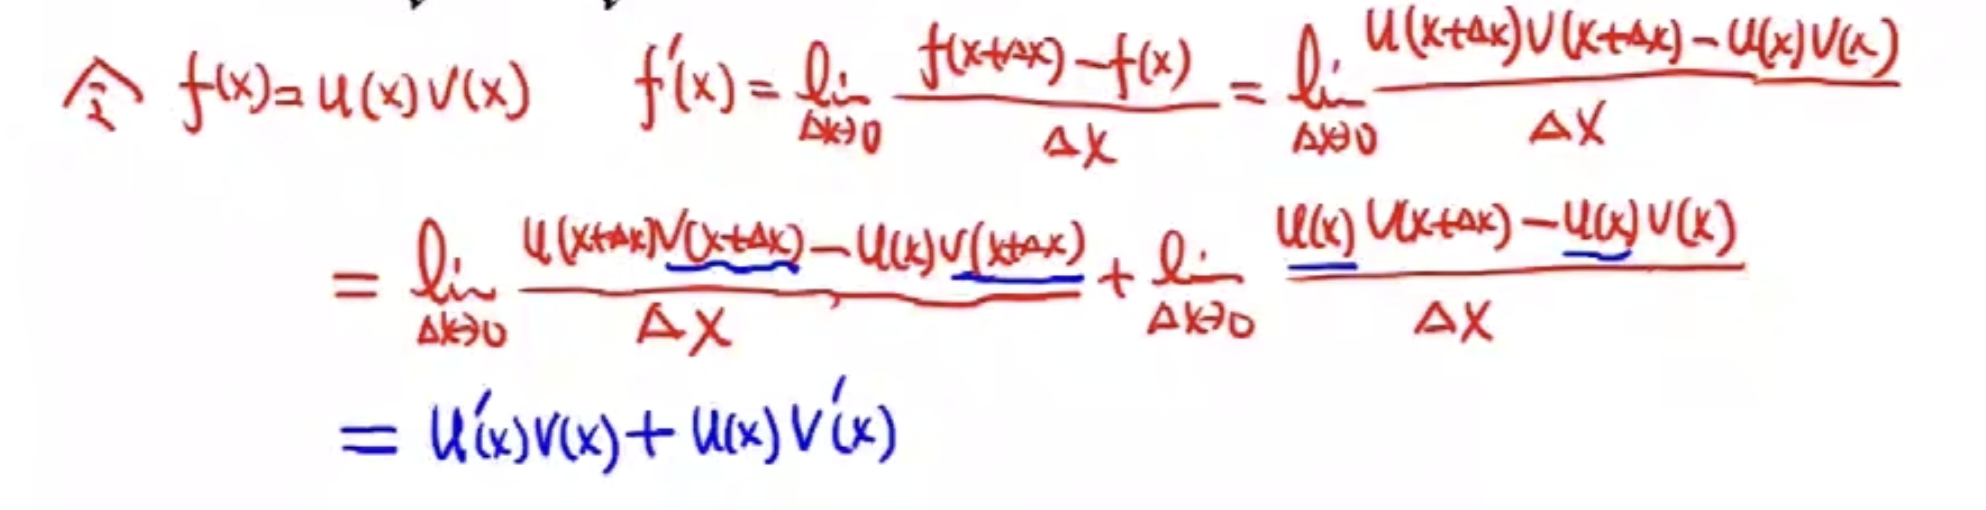 令 f(x)=u(x)v(x) f'(x)=lim_{Δx→0} \frac{f(x+Δx)-f(x)}{Δx} = lim_{Δx→0} \frac{u(x+Δx)v(x+Δx)-u(x)v(x)}{Δx}
= lim_{Δx→0} \frac{u(x+Δx)v(x+Δx)-u(x)v(x+Δx)}{Δx} + lim_{Δx→0} \frac{u(x)v(x+Δx)-u(x)v(x)}{Δx}
= u'(x)v(x)+u(x)v'(x)